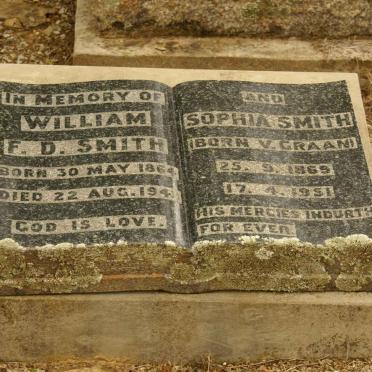 IN MEMORY OF
WILLIAM
F. D. SMITH
BORN 30 MAY
DIED 22 AUG.
GOD IS LOVE.
AND
SOPHIA SMITH
(BORN V. GRAAN)
25. 9. 1869
17. 4. 1951
HIS MERCIES INDURTH
FOR EVER.